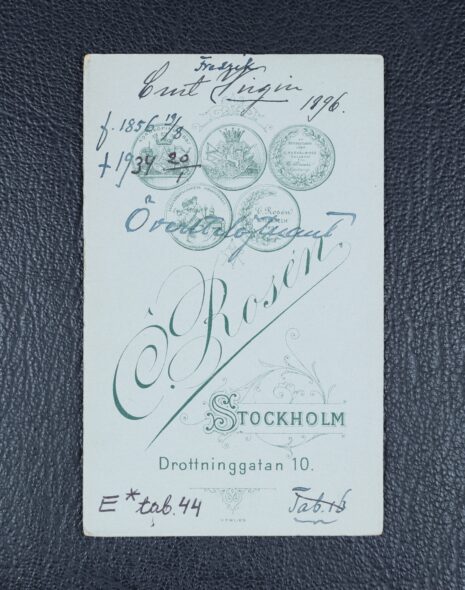 Fredrik
Ernt Virgin 1896.
f. 1856 19/8
† 1934 20/1
C. Rosén
Överstelöjtnant
C. Rosén.
STOCKHOLM
Drottninggatan 10.
E* tab. 44
Tab. 16